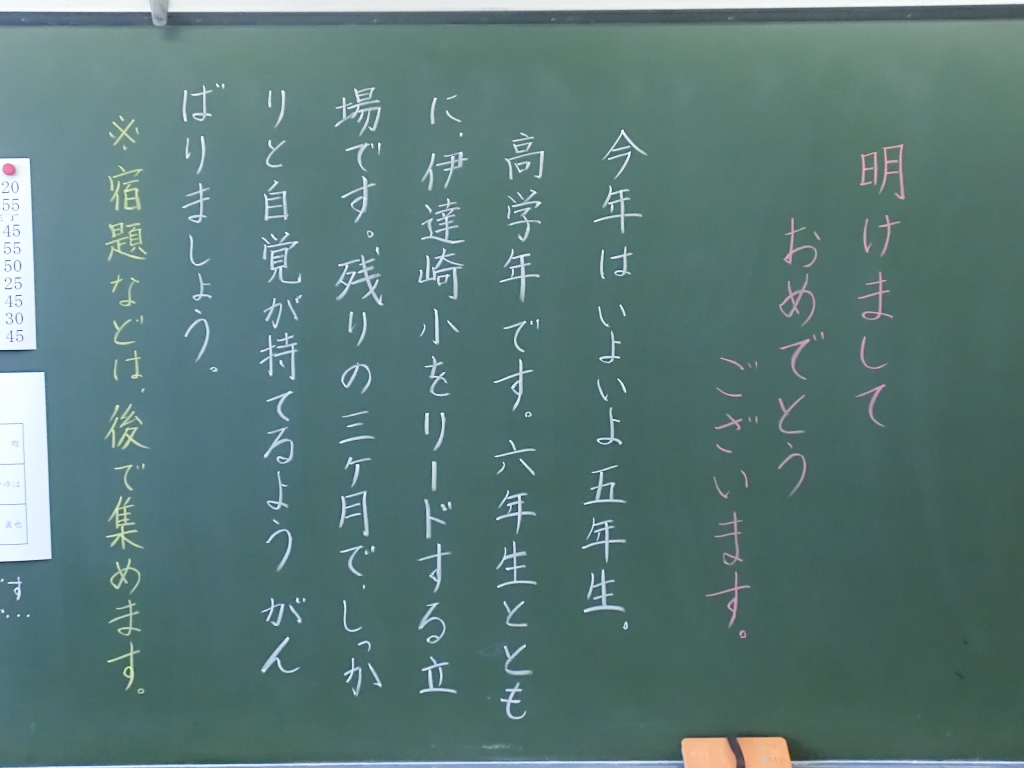 明けまして
おめでとう
ございます。
今年はいよいよ五年生。
高学年です。六年生ととも
に、伊達崎小をリードする立
場です。残りの三ケ月で、しっか
りと自覚が持てるようがん
ばりましょう。
※宿題などは、後で集めます。
20
55
45
55
50
25
45
30
45
す